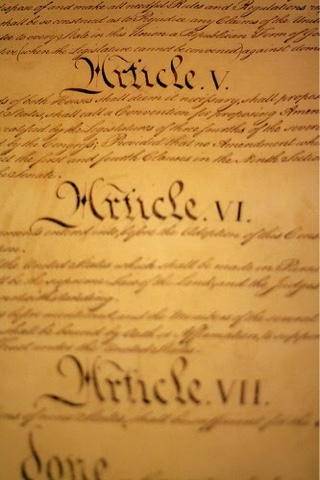 dispose of and make all needful Rules and Regulations
shall be so construed as to Prejudice any Claims of the United
to every State in this Union a Republican Form of
(when the Legislature cannot be convened) against
Article. V.
of both Houses shall deem it necessary, shall propose
States, shall call a Convention for proposing
ratified by the Legislatures of three fourths of the several
by the Congress; Provided that no Amendment
the first and fourth Clauses in the Ninth Section
Senate.
Article. VI.
entered into, before the Adoption of this
the United States which shall be made in
be the supreme Law of the Land; and the Judges
notwithstanding.
before mentioned, and the Members of the several
shall be bound by Oath or Affirmation, to support
Trust under the United States.
Article. VII.
of States, shall be sufficient for the
done